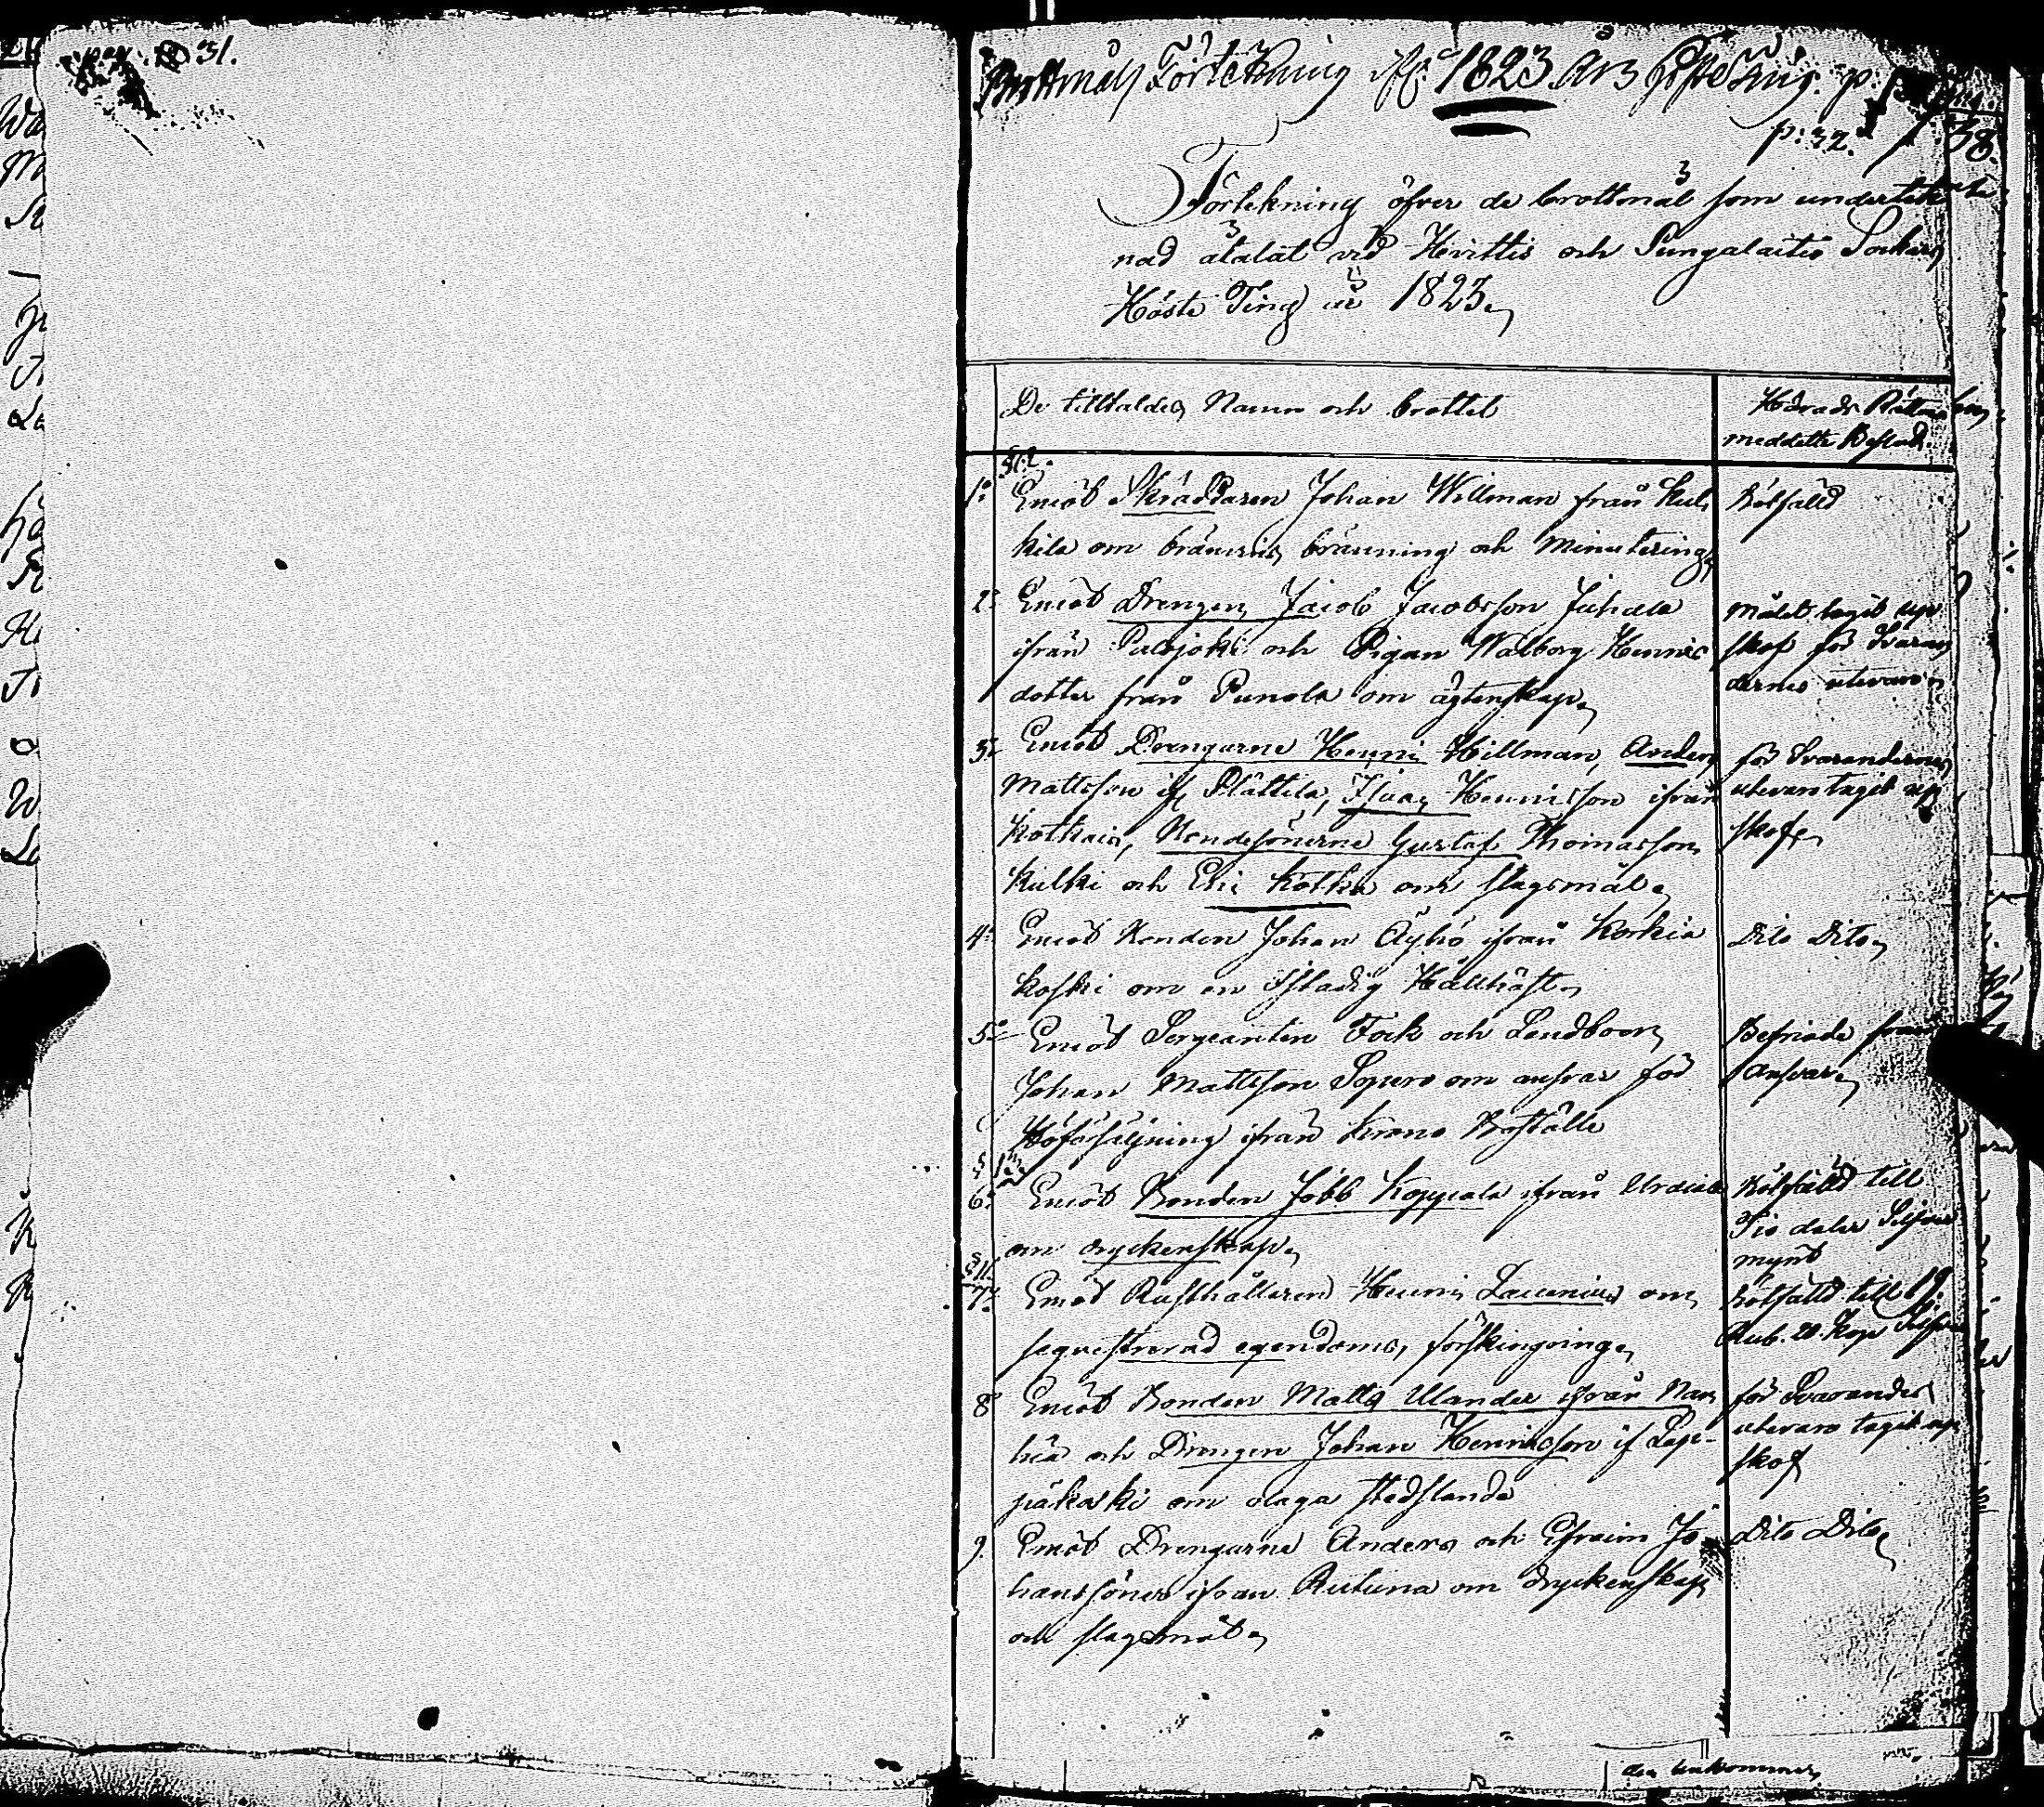 pag. 31.
Brottmåls Förtekning if. 1823 års Höste Ting. p.
p: 32. 38.
Förtekning öfver de brottmål som undertek
nad åtalat vid Hvittis och Pungalaitio Sockens
Höste Ting år 1823,
De tilltaldes Namn och brottet
Härads Rättens
meddelte Beslut.
§ 2.
1o Emot Skräddaren Johan Willman från Kul
kila om bränvins bränning och Minutering,
Botfälld
2o Emot Drengen Jacob Jacobsson Juhala
ifrån Palojoki och Pigan Walborg Henrics
dotter från Punola om ägtenskap,
Målet tagit upp
skof för Svaran
dernes utevaro
3o Emot Drengarne Henric Hillman, Anders
Mattsson if Plättilä, Isaac Henricsson ifrån
Kotkais, Bondesönerne Gustaf Thomasson
Kulki och Eric Kotka om slagsmål,
för Svarandernes
utevaro tagit upp
skof,
4o Emot Bonden Johan Äyhö ifrån Korkia
koski om en istadig Hållhäst,
Dito Dito,
5o Emot Sergeanten Fock och Landboen
Johan Mattsson Sopero om ansvar för
Höförsäljning ifrån Krono Boställe
Befriade från
Ansvar,
6o Emot Bonden Jöbb Koppala ifrån
om dryckenskap,
Botfälld till
Tio daler Silfver
mynt
§ 11.
7o Emot Rusthållaren Henric Laurenius om
sequestrerad egendoms, förskingring,
botfälld till 19
Rub. 20. Kop Silfver
8 Emot Bonden Matts Ulander ifrån Nan
hia och Drengen Johan Henricsson if Lep-
päkoski om olaga stedslande
för Svarandes
utevaro tagit upp
skof
9. Emot Drengarne Anders och Efraim Jo
hanssöner ifrån Rutuna om dryckenskap
och slagsmål,
Dito Dito,